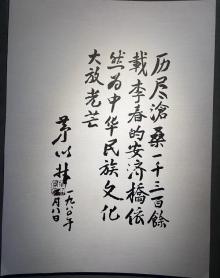 历尽滄桑一千三百餘
載李春的安济橋依
然为中华民族文化
大放光芒
茅以昇
一九八〇年
月八日